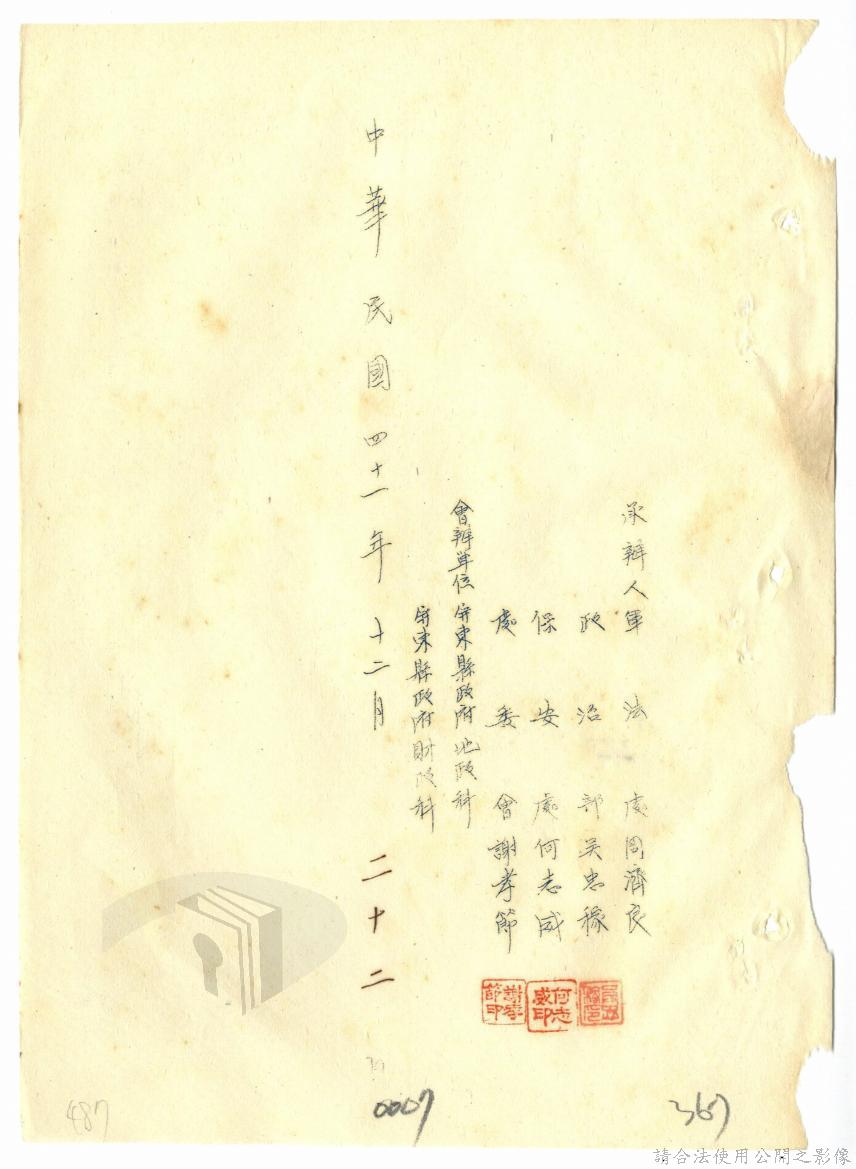 承辦人軍法處周濟良
政治部吳忠稼
保安處何志威
處委會謝孝節
會辦單位屏東縣政府地政科
屏東縣政府財政科
何志威印
謝孝節印
中華民國四十一年十二月二十二
487
0007
367
請合法使用公開之影像